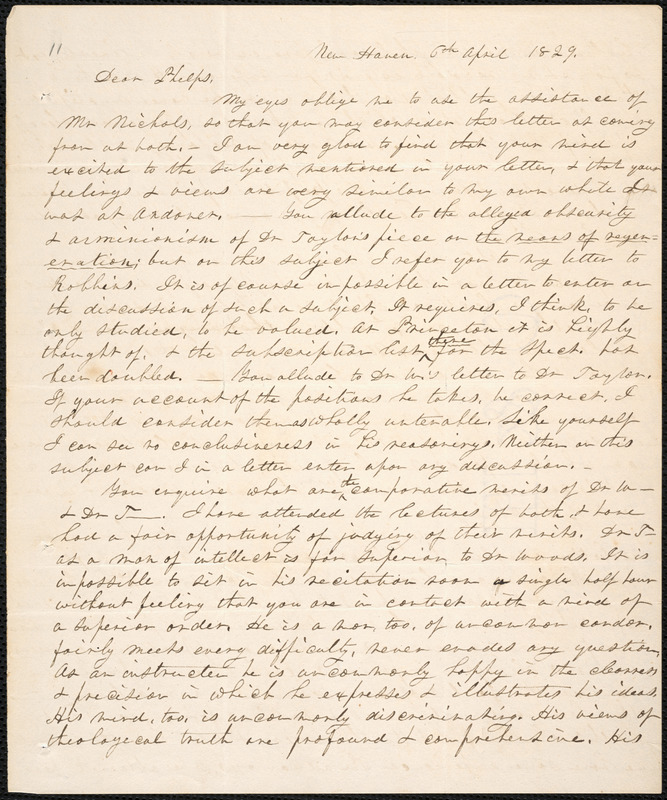 11
New Haven. 6th April 1829.
Dear Phelps,
My eyes oblige me to use the assistance of
Mr Nichols, so that you may consider this letter as coming
from us both. – I am very glad to find that your mind is
excited to the subject mentioned in your letter, & that your
feelings & views are very similar to my own while I
was at Andover. — You allude to the alleged obscurity
& arminionism of Dr Taylor's piece on the means of regen=
eration; but on this subject I refer you to my letter to
Robbins. It is of course impossible in a letter to enter on
the discussion of such a subject. It requires, I think, to be
only studied, to be valued. At Princeton it is highly
thought of, & the subscription list there for the Spect. has
been doubled. — You allude to Dr W's letter to Dr Taylor.
If your account of the positions he takes, be correct, I
should consider them as wholly untenable. Like yourself
I can see no conclusiveness in his reasonings. Neither on this
subject can I in a letter enter upon any discussion. –
You enquire what are the comparative merits of Dr W—
& Dr T—. I have attended the lectures of both, & have
had a fair opportunity of judging of their merits. Dr T–
as a man of intellect is far superior to Dr Woods. It is
impossible to sit in his recitation room a single half hour
without feeling that you are in contact with a mind of
a superior order. He is a man, too, of uncommon candor,
fairly meets every difficulty, never evades any question.
As an instructer he is uncommonly happy in the clearness
& precision in which he expresses & illustrates his ideas.
His mind, too, is uncommonly discriminating. His views of
theological truth are profound & comprehensive. His